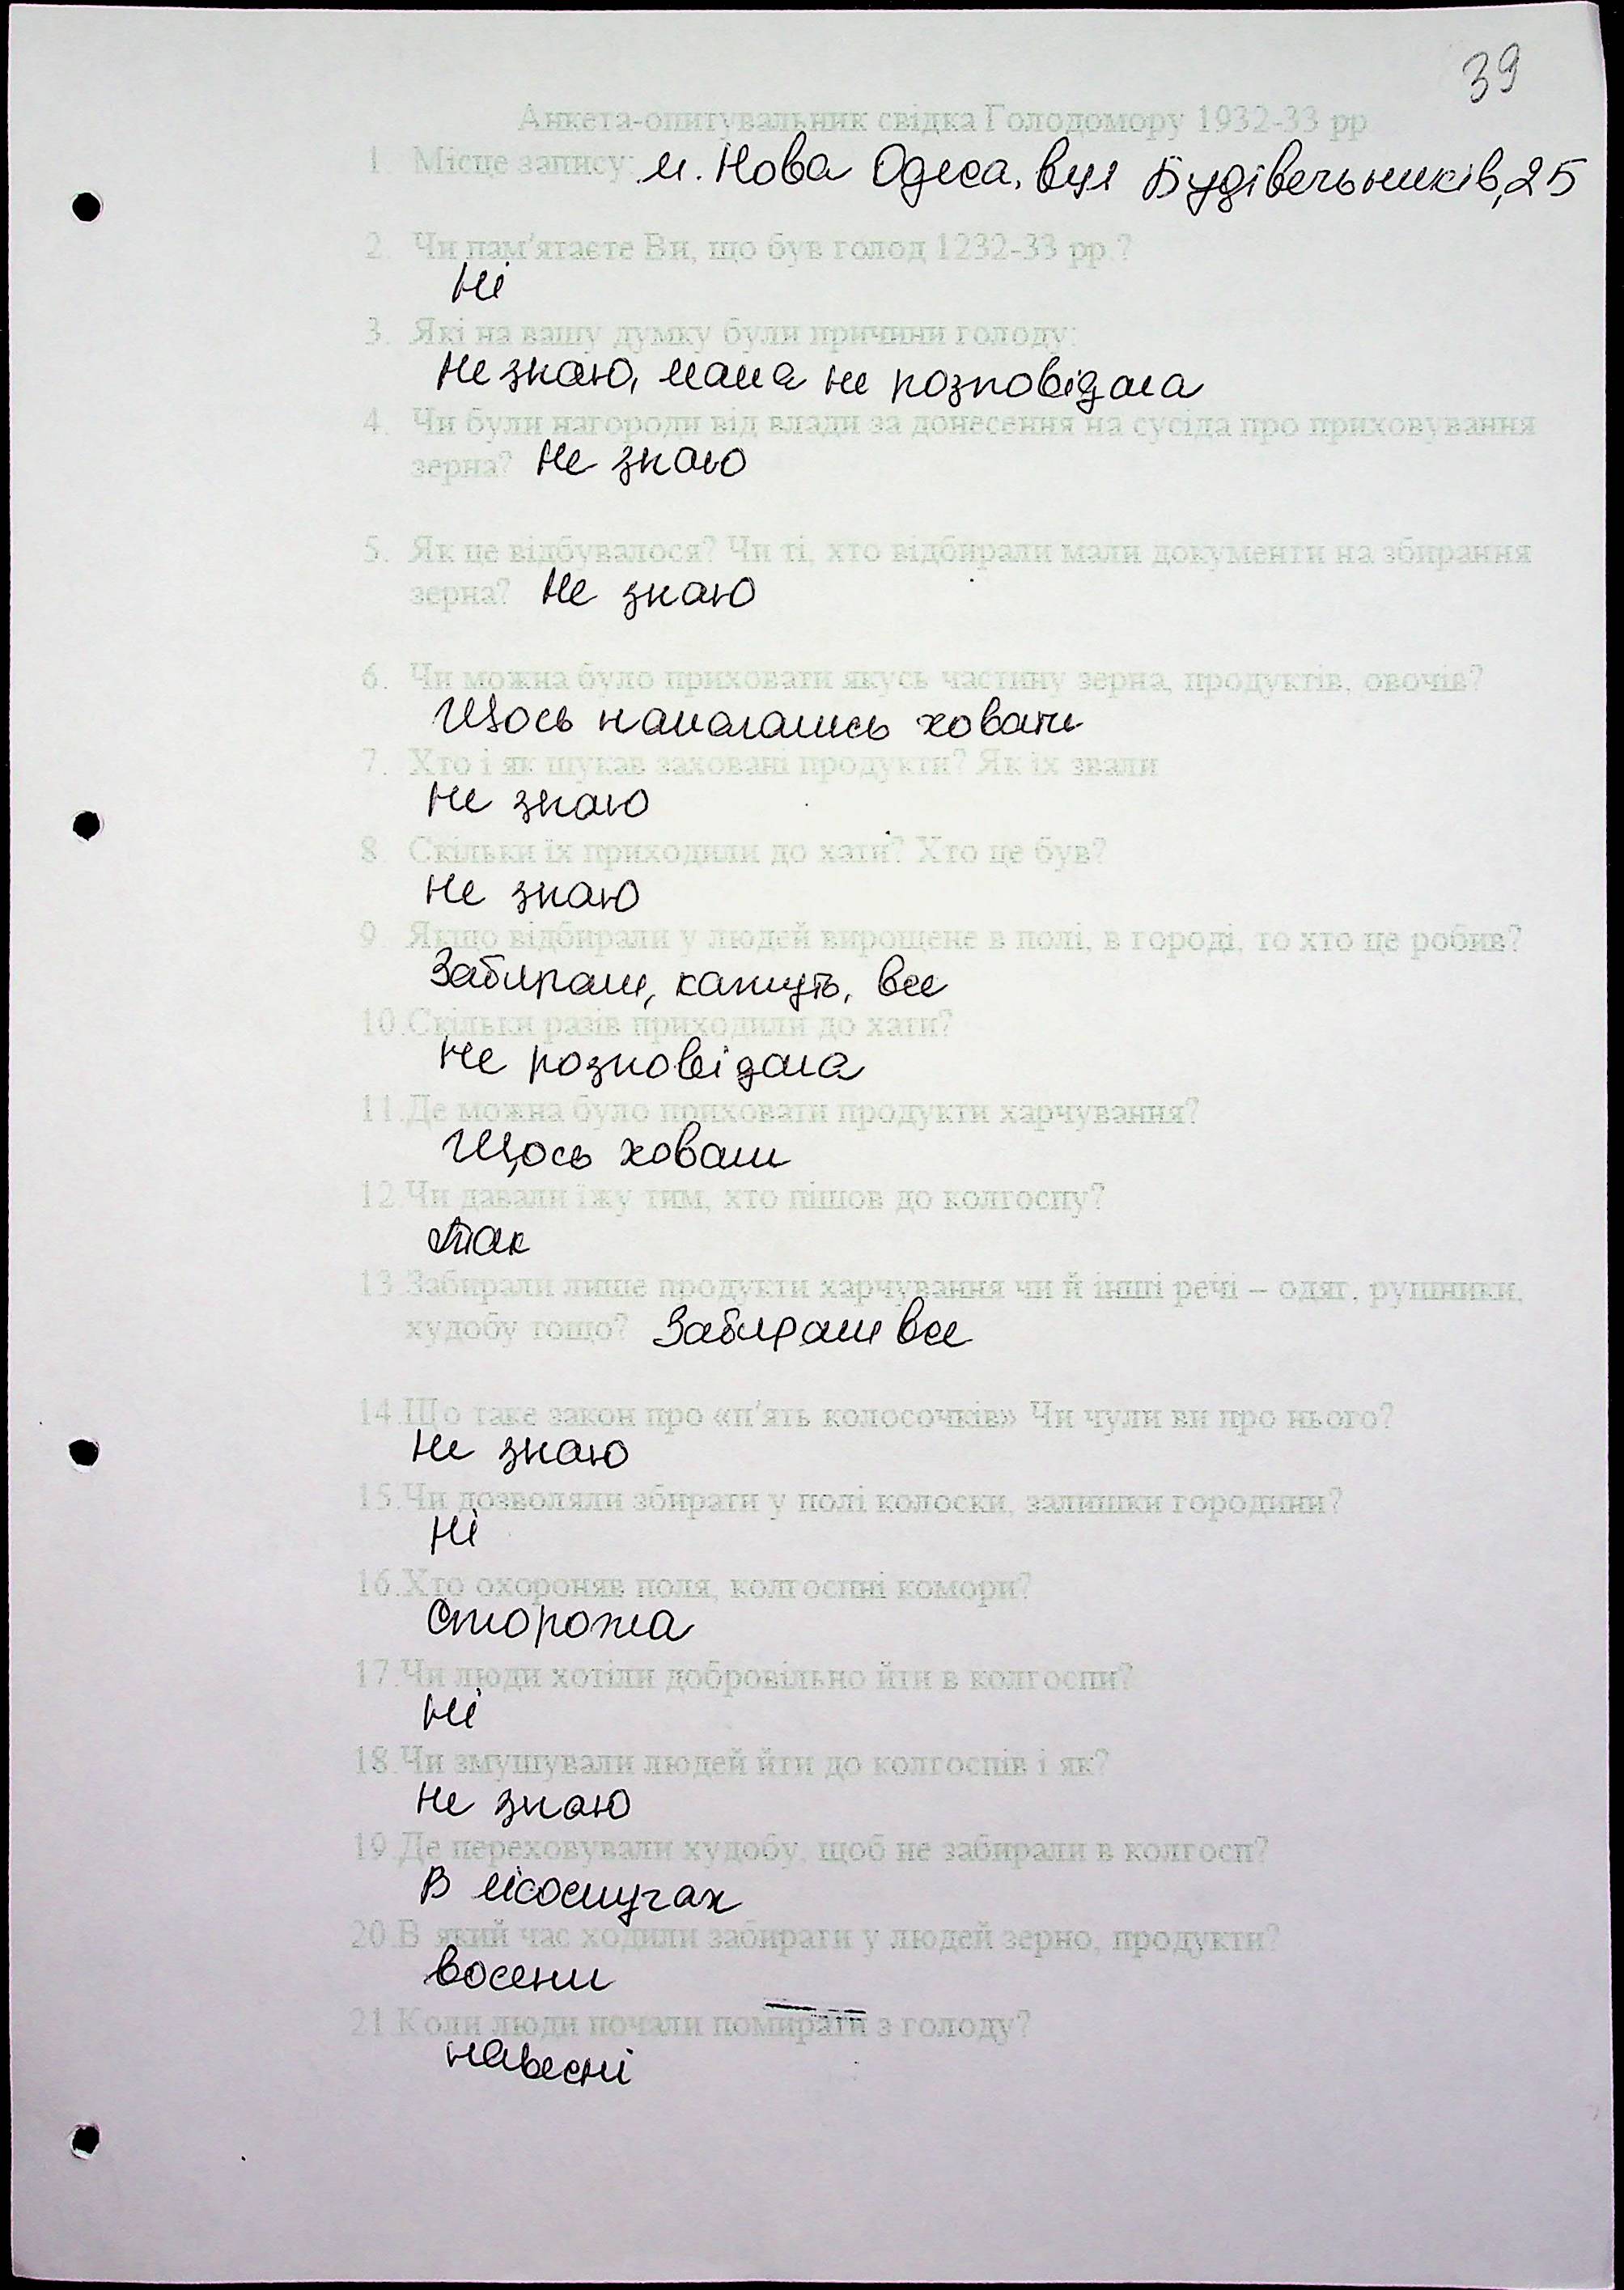 39
Анкета-опитувальник свідка Голодомору 1932-33 рр
1. Місце запису: м. Нова Одеса, вул Будівельників, 25
2. Чи пам'ятаєте Ви, що був голод 1232-33 рр.?
Ні
3. Які на вашу думку були причини голоду:
Не знаю, мама не розповідала
4. Чи були нагороди від влади за донесення на сусіда про приховування
зерна? Не знаю
5. Як це відбувалося? Чи ті, хто відбирали мали документи на збирання
зерна? Не знаю
6. Чи можна було приховати якусь частину зерна, продуктів, овочів?
Щось намагались ховати
7. Хто і як шукав заховані продукти? Як їх звали
Не знаю
8. Скільки їх приходили до хати? Хто це був?
Не знаю
9. Якщо відбирали у людей вирощене в полі, в городі, то хто це робив?
Забирали, кажуть, все
10. Скільки разів приходили до хати?
Не розповідала
11. Де можна було приховати продукти харчування?
Щось ховали
12. Чи давали їжу тим, хто пішов до колгоспу?
Так
13. Забирали лише продукти харчування чи й інші речі – одяг, рушники,
худобу тощо? Забирали все
14. Що таке закон про «п'ять колосочків» Чи чули ви про нього?
Не знаю
15. Чи дозволяли збирати у полі колоски, залишки городини?
Ні
16. Хто охороняв поля, колгоспні комори?
Сторожа
17. Чи люди хотіли добровільно йти в колгоспи?
Ні
18. Чи змушували людей йти до колгоспів і як?
Не знаю
19. Де переховували худобу, щоб не забирали в колгосп?
В лісосмугах
20. В який час ходили забирати у людей зерно, продукти?
восени
21. Коли люди почали помирати з голоду?
навесні